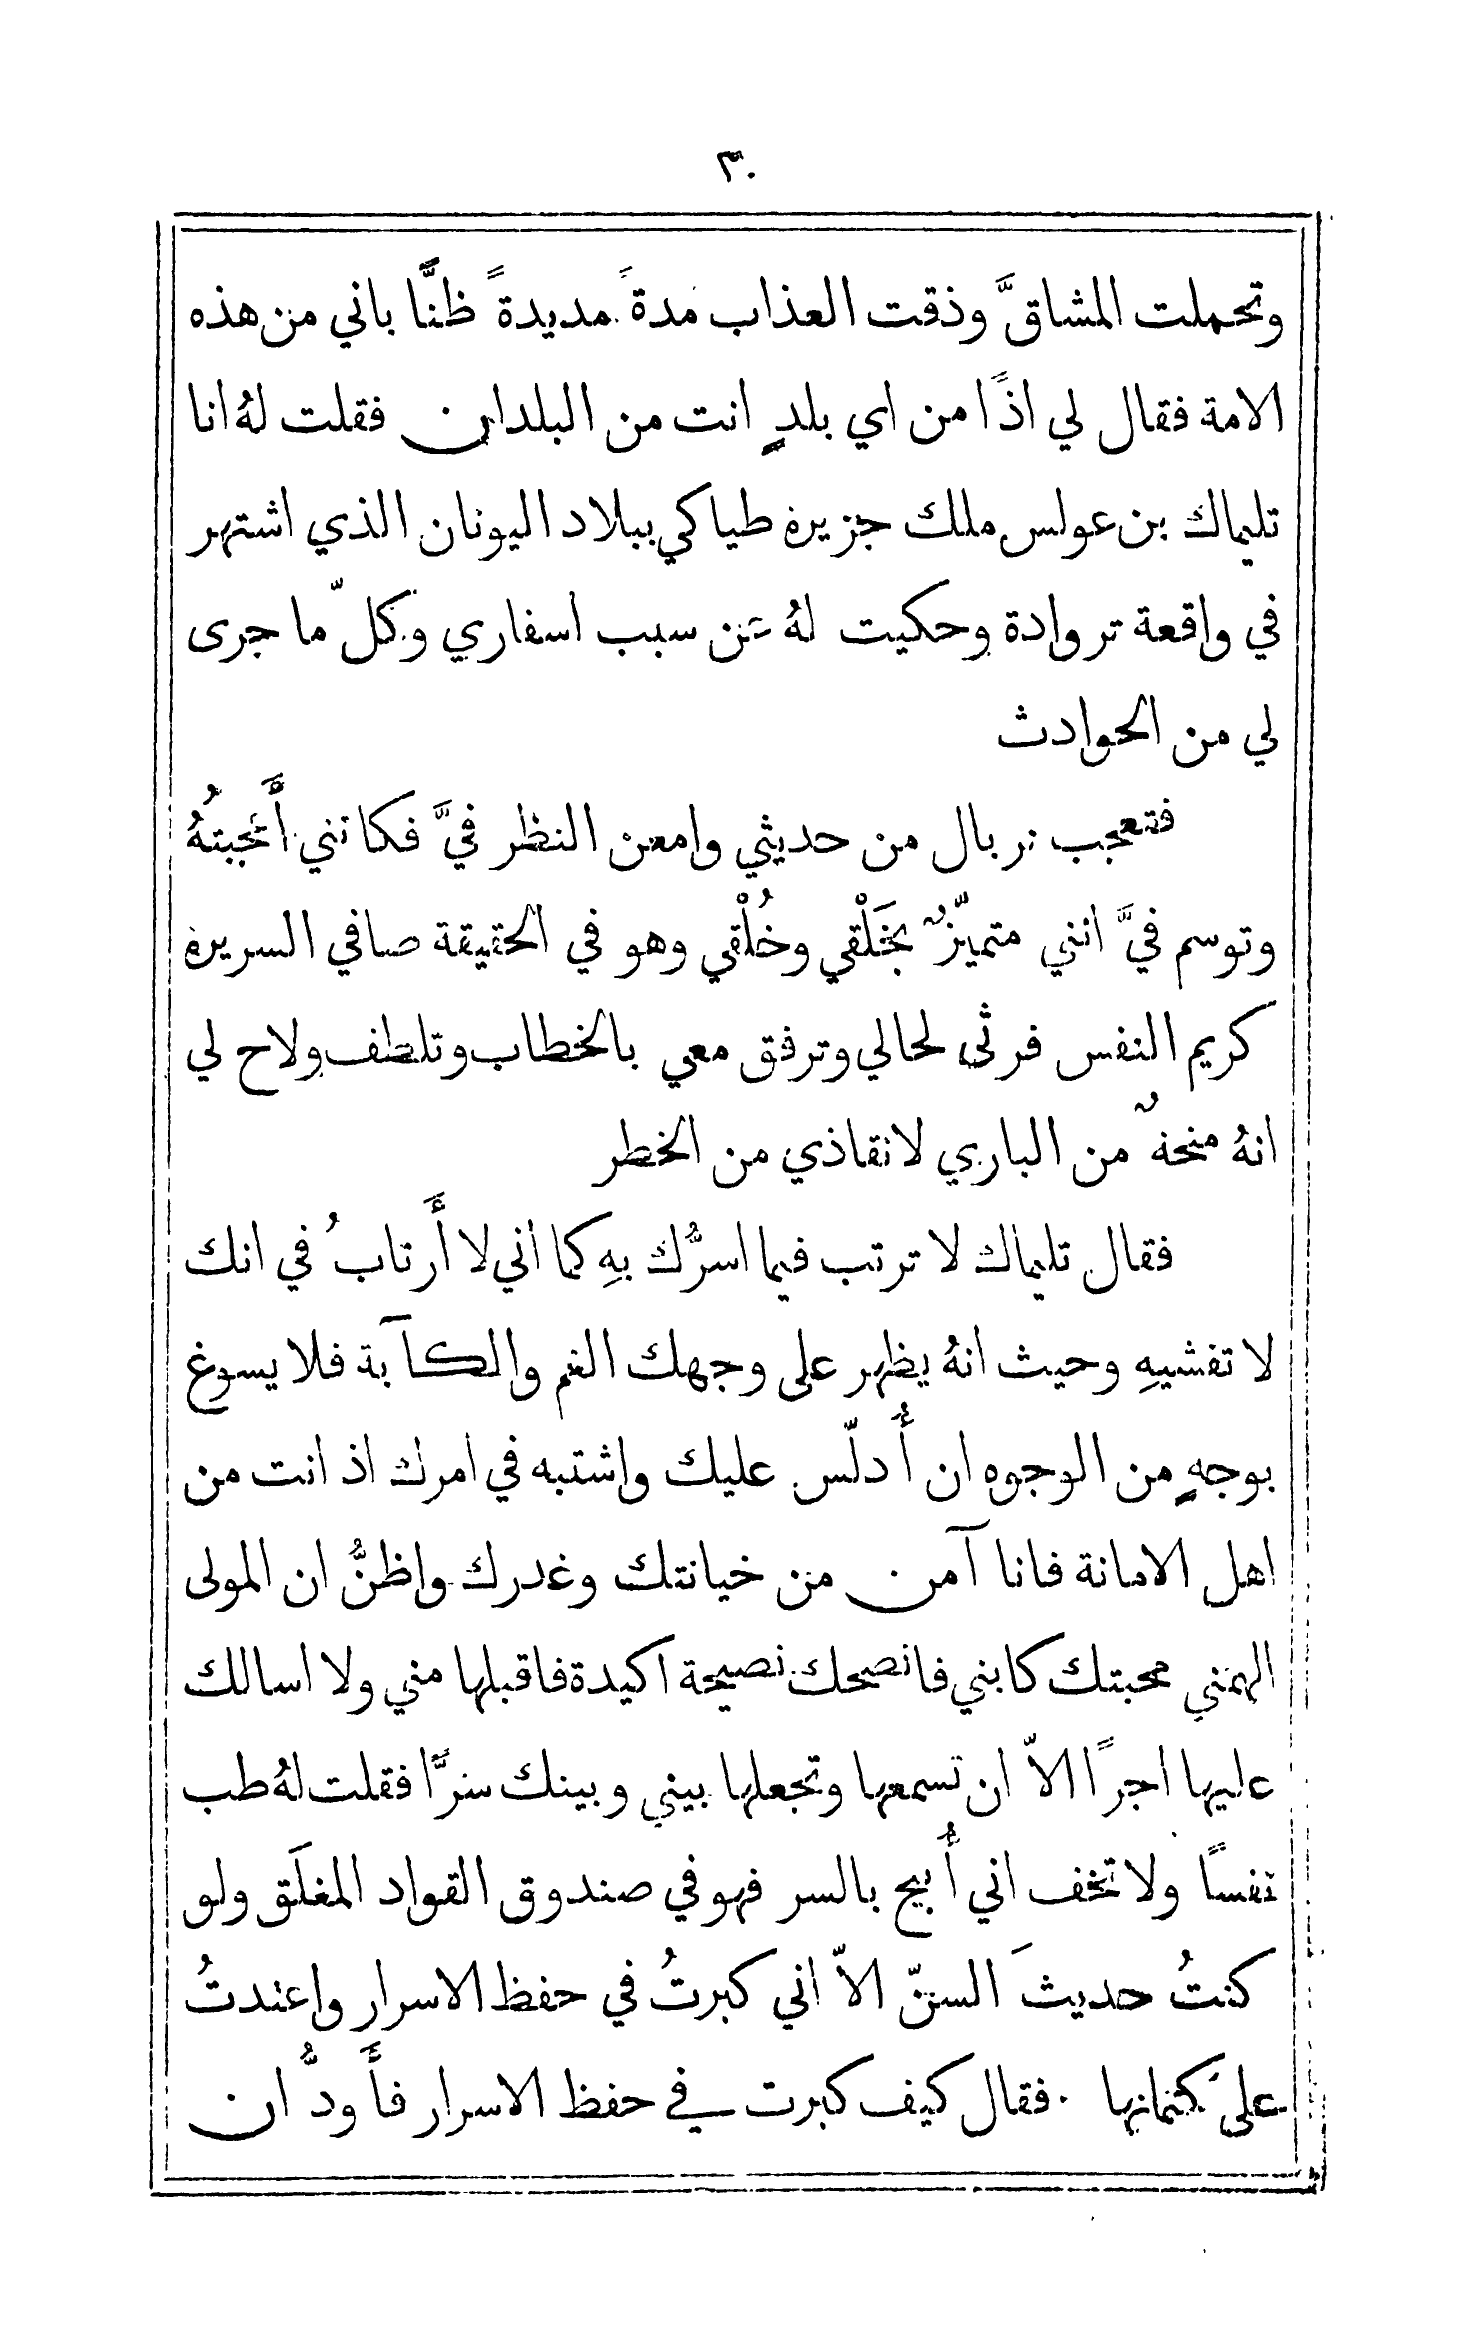 ٣٠
وتحملت المشاقَّ وذقت العذاب مدةً مديدةً ظنًّا باني من هذه
الامة فقال لي اذًا من اي بلدٍ انت من البلدان فقلت لهُ انا
تليماك بن عولس ملك جزيرة طياكي ببلاد اليونان الذي اشتهر
في واقعة تروادة وحكيت لهُ عن سبب اسفاري وكلّ ما جرى
لي من الحوادث
فتعجب نربال من حديثي وامعن النظر فيَّ فكانني أَعجبتُهُ
وتوسم فيَّ انني متميّزٌ بخَلْقي وخُلْقي وهو في الحقيقة صافي السريرة
كريم النفس فرثَى لحالي وترفق معي بالخطاب وتلطف ولاح لي
انهُ منحةٌ من الباري لانقاذي من الخطر
فقال تليماك لا ترتب فيما اسرُّك بهِ كما اني لا أَرتابُ في انك
لا تفشيهِ وحيث انهُ يظهر على وجهك الغم والكآبة فلا يسوغ
بوجهٍ من الوجوه ان أُدلّس عليك واشتبه في امرك اذ انت من
اهل الامانة فانا آمن من خيانتك وغدرك واظنُّ ان المولى
الهمني محبتك كابني فانصحك نصيحة اكيدة فاقبلها مني ولا اسالك
عليها اجرًا الاّ ان تسمعها وتجعلها بيني وبينك سرًّا فقلت لهُ طب
نفسًا ولا تخف اني أُبيح بالسر فهو في صندوق القواد المغلَق ولو
كنتُ حديثَ السنّ الاّ اني كبرتُ في حفظ الاسرار واعتدتُ
على كتمانها فقال كيف كبرت في حفظ الاسرار فأَودُّ ان